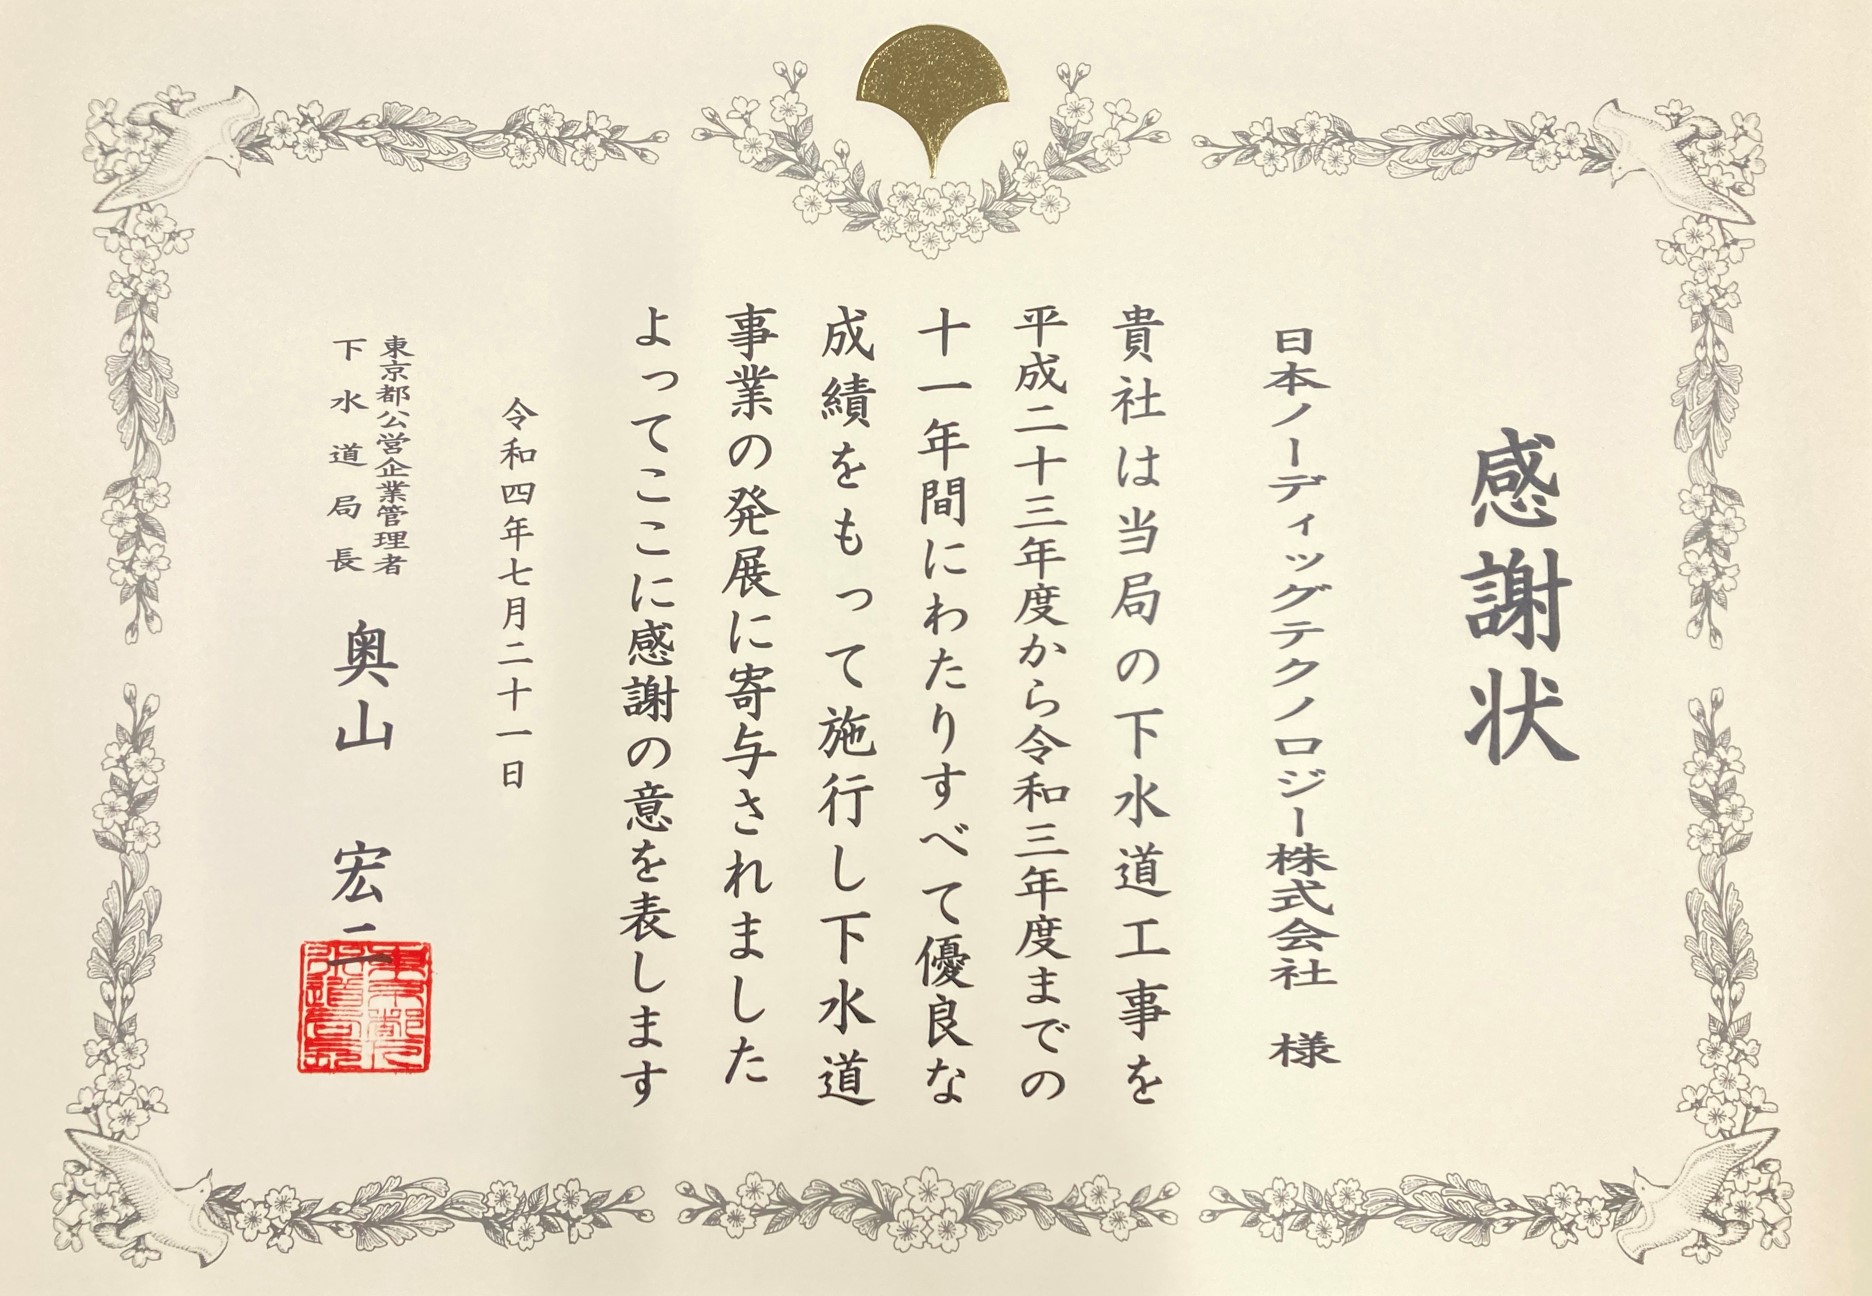 感謝状
日本ノーディッグテクノロジー株式会社 様
貴社は当局の下水道工事を
平成二十三年度から令和三年度までの
十一年間にわたりすべて優良な
成績をもって施行し下水道
事業の発展に寄与されました
よってここに感謝の意を表します
令和四年七月二十一日
東京都公営企業管理者
下水道局長 奥山 宏二